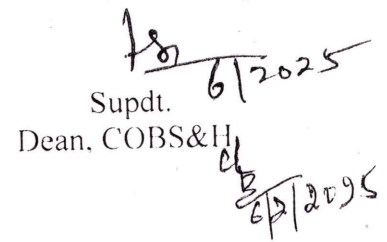 6/2025
Supdt.
Dean, COBS&H
6/2/2025